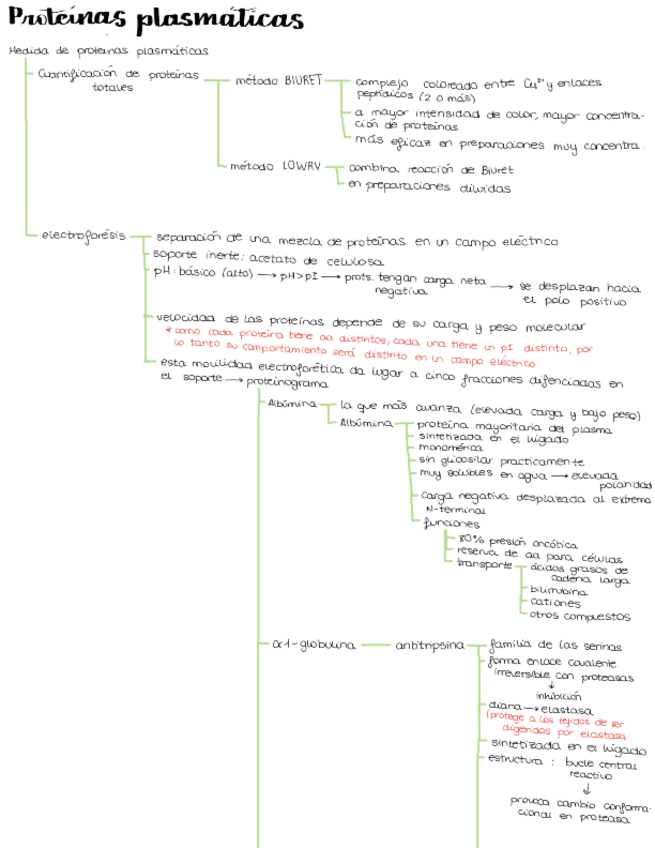 Proteínas plasmáticas
Medida de proteínas plasmáticas
Cuantificación de proteínas
totales
método BIURET
complejo coloreado entre Cu²⁺ y enlaces
peptídicos (2 o más)
a mayor intensidad de color, mayor concentra-
ción de proteínas
más eficaz en preparaciones muy concentra.
método LOWRY
combina reacción de Biuret
en preparaciones diluidas
electroforésis
separación de una mezcla de proteínas en un campo eléctrico
soporte inerte: acetato de celulosa
pH: básico (alto) → pH>pI → prots. tengan carga neta
negativa
→ se desplazan hacia
el polo positivo
velocidad de las proteínas depende de su carga y peso molecular
* como cada proteína tiene aa distintos, cada una tiene un pI distinto, por
lo tanto su comportamiento será distinto en un campo eléctrico
esta movilidad electroforética da lugar a cinco fracciones difenciadas en
el soporte → proteinograma
Albúmina
la que más avanza (elevada carga y bajo peso)
Albúmina
proteína mayoritaria del plasma
sintetizada en el hígado
monomérica
sin glicosilar practicamente
muy solubles en agua → elevada
polaridad
carga negativa desplazada al extremo
N-terminal
funciones
80% presión oncótica
reserva de aa para células
transporte
ácidos grasos de
cadena larga
bilirrubina
cationes
otros compuestos
α1-globulina
antitripsina
familia de las serinas
forma enlace covalente
irreversible con proteasas
↓
inhibición
diana → elastasa
(protege a los tejidos de ser
digeridos por elastasa
sintetizada en el hígado
estructura : bucle central
reactivo
↓
provoca cambio conforma-
cional en proteasa